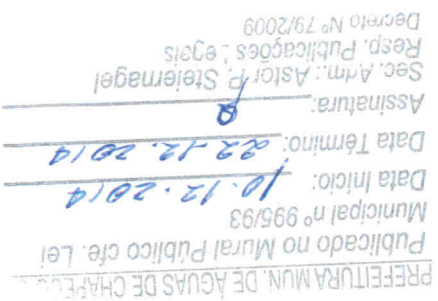 PREFEITURA MUN. DE ÁGUAS DE CHAPECÓ
Publicado no Mural Público cfe. Lei
Municipal nº 995/93
Data Início: 10.12.2014
Data Término: 22.12.2014
Assinatura:
Sec. Adm.: Astor P. Steiernagel
Resp. Publicações Legais
Decreto Nº 79/2009